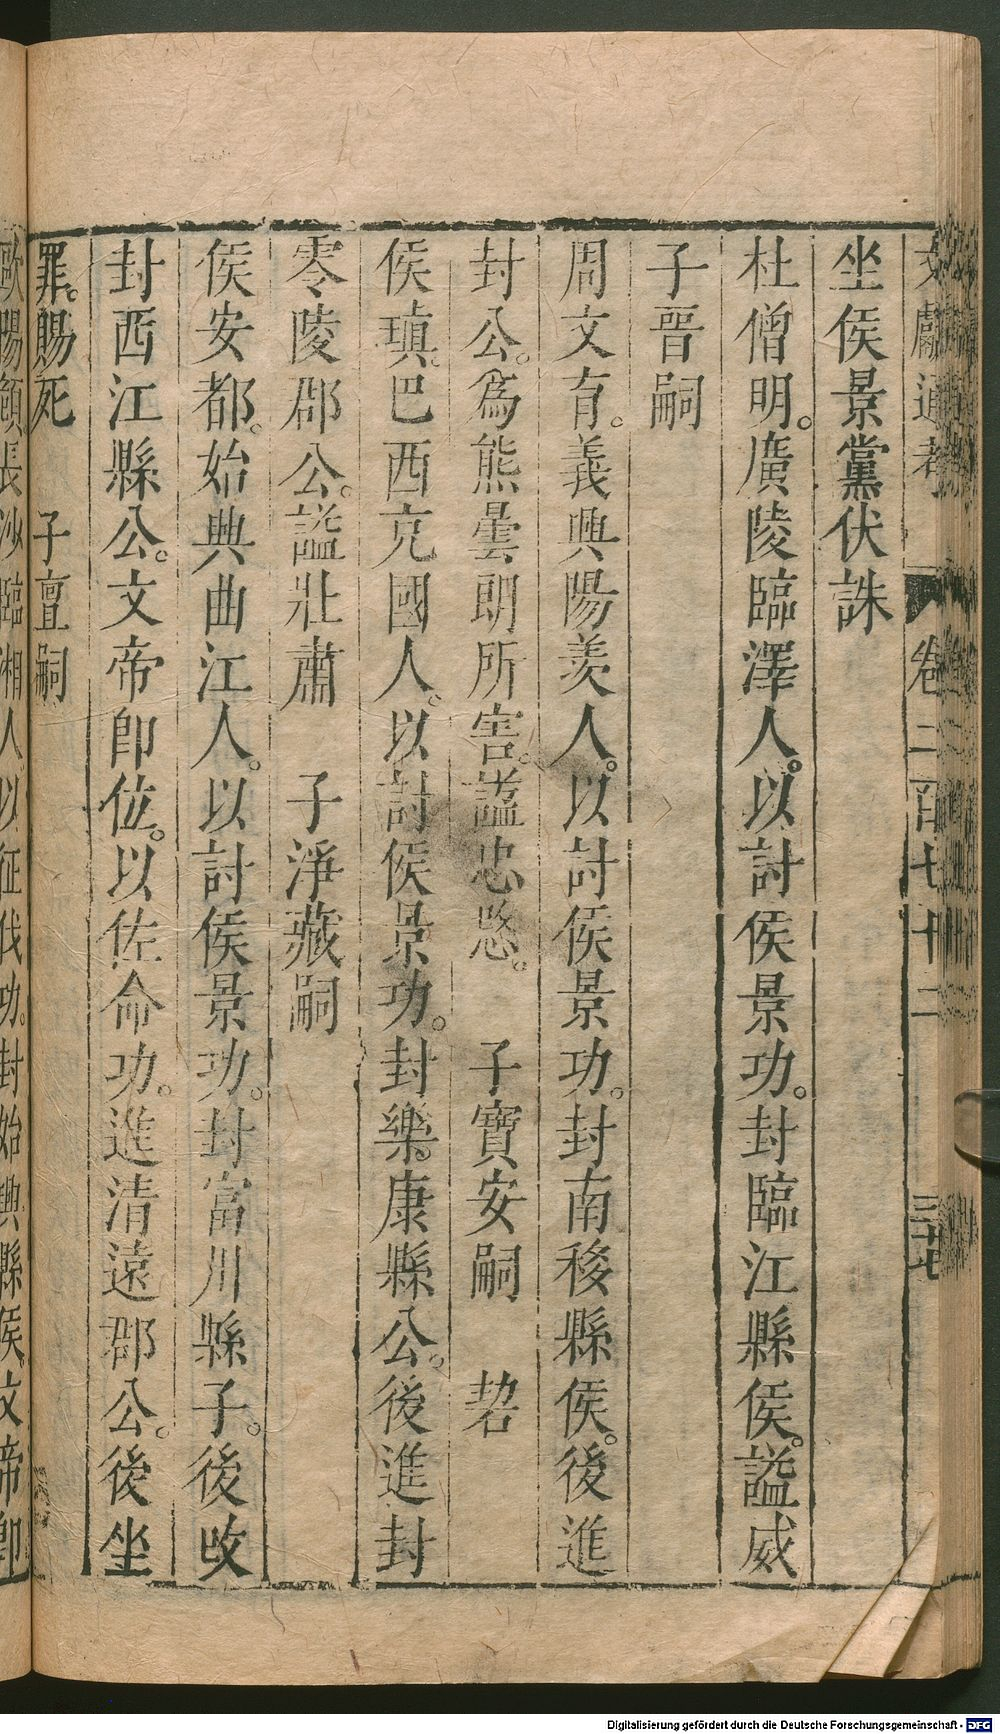 文獻通考 卷二百七十二 三十七
坐侯景黨伏誅
杜僧明。廣陵臨澤人。以討侯景功。封臨江縣侯。謚威
子晉嗣
周文育。義興陽羨人。以討侯景功。封南移縣侯。後進
封公。為熊曇朗所害。謚忠愍。 子寶安嗣 䂮
侯瑱。巴西充國人。以討侯景功。封樂。康縣公。後進封
零陵郡公。謚壯肅 子淨藏嗣
侯安都。始興曲江人。以討侯景功。封富川縣子。後改
封西江縣公。文帝即位。以佐命功。進清遠郡公。後坐
罪。賜死 子亶嗣
歐陽頠長沙臨湘人以征伐功。封始興縣侯。文帝即
Digitalisierung gefördert durch die Deutsche Forschungsgemeinschaft - DFG